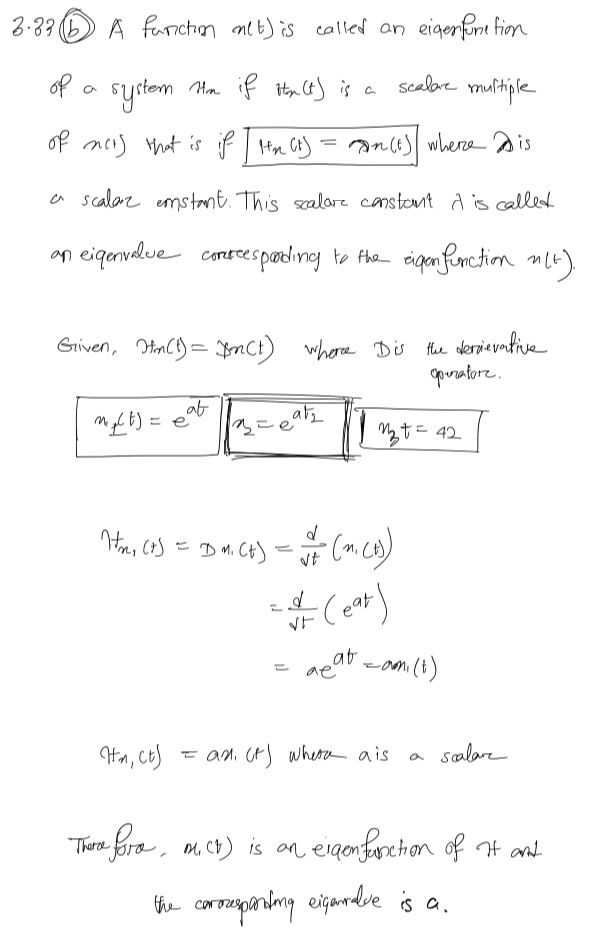 3.33 (b) A function x(t) is called an eigenfunction
of a system Hx if Hx(t) is a scalar multiple
of x(t) that is if Hx(t) = λx(t) where λ is
a scalar constant. This scalar constant λ is called
an eigenvalue corresponding to the eigenfunction x(t).
Given, Hx(t) = Dx(t) where D is the derivative
operator.
x₁(t) = e^at x₂ = e^at₂ x₃t = 42
Hx₁(t) = Dx₁(t) = d/dt (x₁(t))
= d/dt (e^at)
= ae^at = ax₁(t)
Hx₁(t) = ax₁(t) where a is a scalar
Therefore, x₁(t) is an eigenfunction of H and
the corresponding eigenvalue is a.